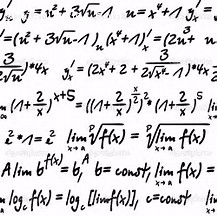 '=(u²+3√u-1) u=x⁴+1 y'ₓ
y'ₓ=(u²+3√u-1)ᵤ(x⁴+1)'ₓ=(2u³
3/2√u)*4x y'ₓ=(2x⁴+2+3/2√(x⁴-1))*4x³
(1+2/x)ˣ⁺⁵=((1+2/x)^(x/2))²*(1+2/x)⁵
e²*1=e² lim x→a ᵖ√f(x)=ᵖ√lim x→a f(x)
A lim b^f(x)=b^A, b=const, lim x→a f(x)
lim x→a log_c f(x)=log_c [lim f(x)], c=const